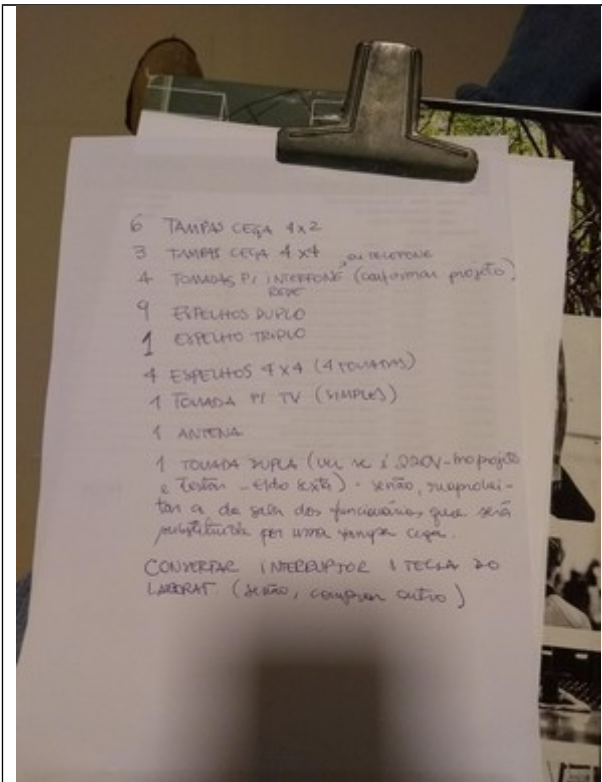 6 TAMPAS CEGA 4x2
3 TAMPAS CEGA 4x4
ou TELEFONE
4 TOMADAS P/ INTERFONE (conformar projeto)
REDE
9 ESPELHOS DUPLO
1 ESPELHO TRIPLO
4 ESPELHOS 4x4 (4 TOMADAS)
1 TOMADA P/ TV (SIMPLES)
1 ANTENA
1 TOMADA DUPLA (ver se é 220V - no projeto
e testar - sexta) - senão, reaprovei-
tar a da sala dos funcionários que será
substituída por uma tampa cega.
CONSERTAR INTERRUPTOR 1 TECLA DO
LABORAT. (senão, comprar outro)